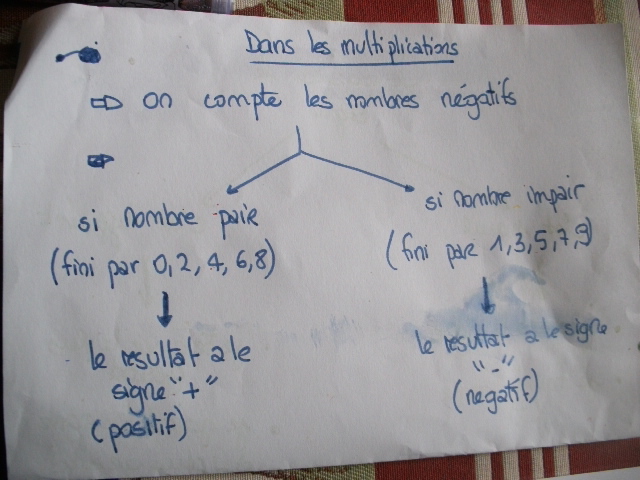 Dans les multiplications
⇨ on compte les nombres négatifs
si nombre paire
(fini par 0, 2, 4, 6, 8)
le resultat a le
signe "+"
(positif)
si nombre impair
(fini par 1, 3, 5, 7, 9)
le resultat a le signe
"-"
(negatif)